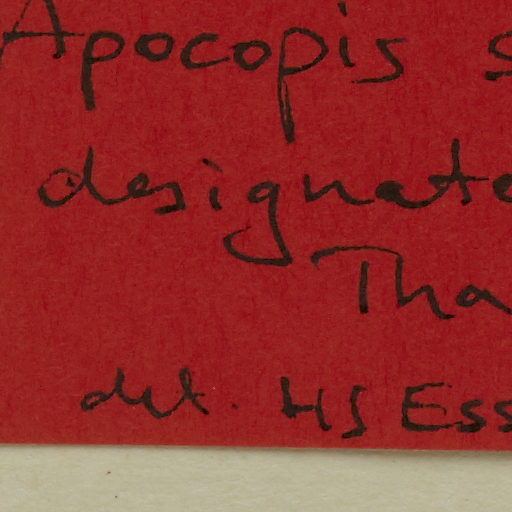 Apocopis s
designate
Tha
det. HS Ess